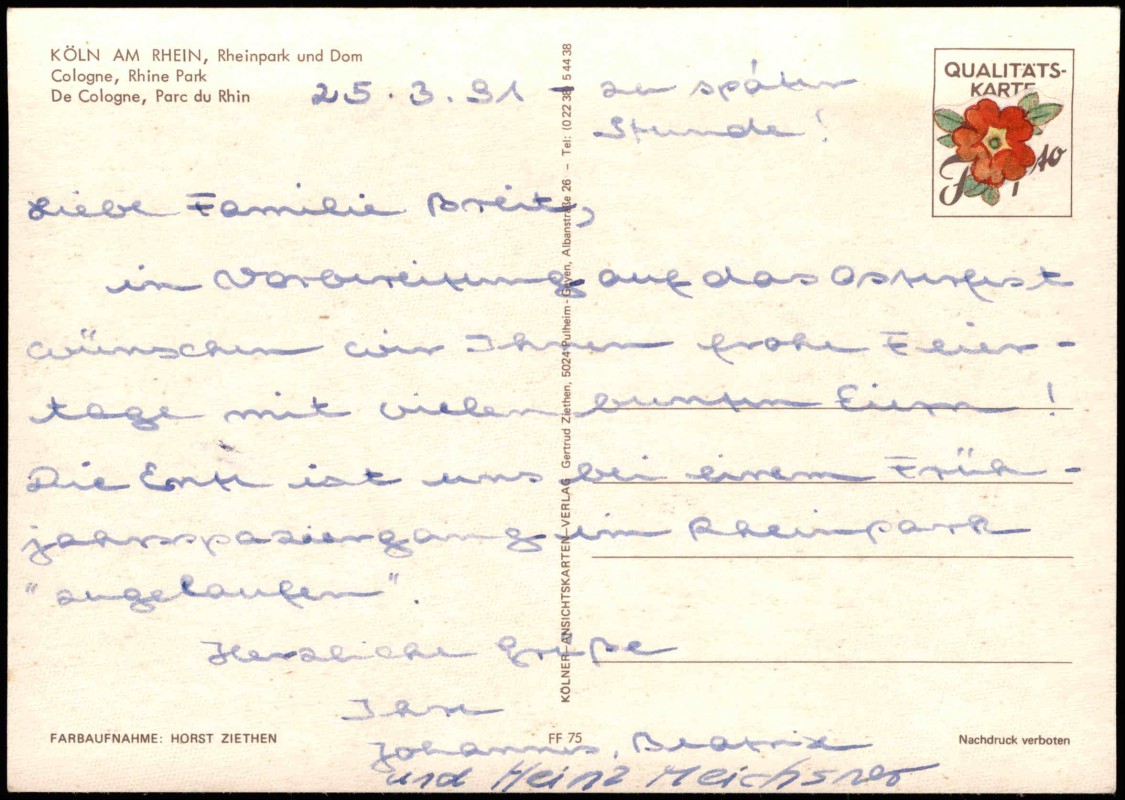 KÖLN AM RHEIN, Rheinpark und Dom
Cologne, Rhine Park
De Cologne, Parc du Rhin
QUALITÄTS-
KARTE
25.3.91 - zu später
Stunde!
Liebe Familie Breit,
in Vorbereitung auf das Osterfest
wünschen wir Ihnen frohe Feier-
tage mit vielen bunten Eiern!
Die Ente ist uns bei einem Früh-
jahrsspaziergang im Rheinpark
"zugelaufen".
Herzliche Grüße
Ihre
Johannes, Beatrix
und Heinz Meichsner
KÖLNER-ANSICHTSKARTEN-VERLAG Gertrud Ziethen, 5024 Pulheim-Geyen, Albanstraße 26 - Tel: (02238) 54438
FARBAUFNAHME: HORST ZIETHEN
FF 75
Nachdruck verboten